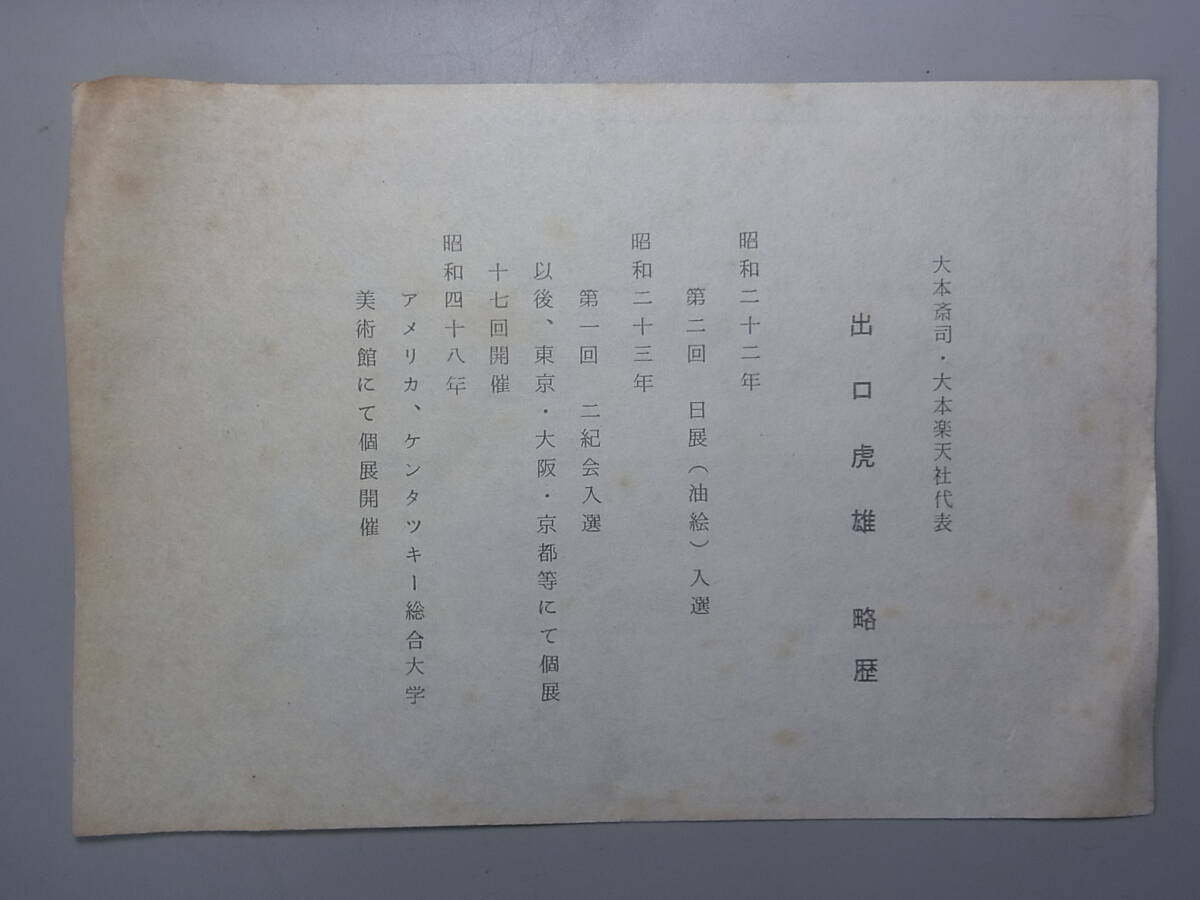 大本斎司・大本楽天社代表
出口虎雄 略歴
昭和二十二年
第二回 日展（油絵）入選
昭和二十三年
第一回 二紀会入選
以後、東京・大阪・京都等にて個展
十七回開催
昭和四十八年
アメリカ、ケンタツキー総合大学
美術館にて個展開催